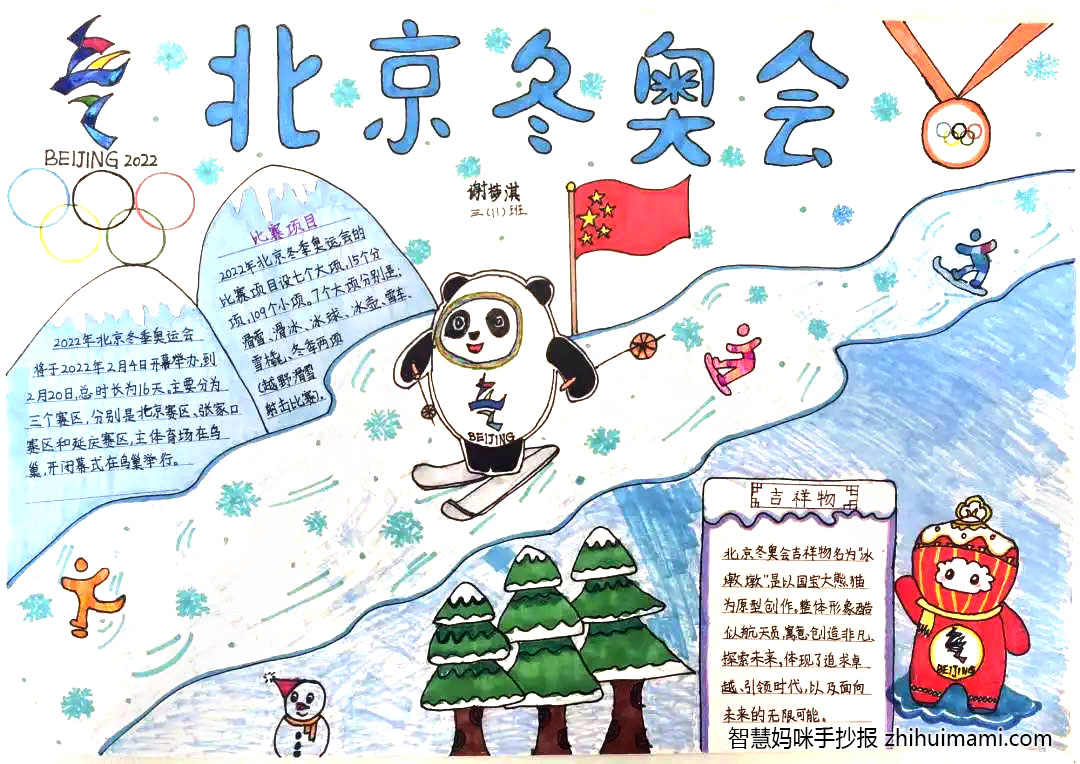 北京冬奥会
BEIJING 2022
谢梦淇
三(11)班
比赛项目
2022年北京冬季奥运会的
比赛项目设七个大项,15个分
项,109个小项。7个大项分别是:
滑雪、滑冰、冰球、冰壶、雪车、
雪橇、冬季两项
(越野滑雪
射击比赛)。
2022年北京冬季奥运会
将于2022年2月4日开幕举办,到
2月20日,总时长为16天。主要分为
三个赛区,分别是北京赛区、张家口
赛区和延庆赛区,主体育场在鸟
巢,开闭幕式在鸟巢举行。
BEIJING
吉祥物
北京冬奥会吉祥物名为"冰
墩墩"是以国宝大熊猫
为原型创作。整体形象酷
似航天员,寓意创造非凡、
探索未来,体现了追求卓
越、引领时代,以及面向
未来的无限可能。
BEIJING
智慧妈咪手抄报 zhihuimami.com